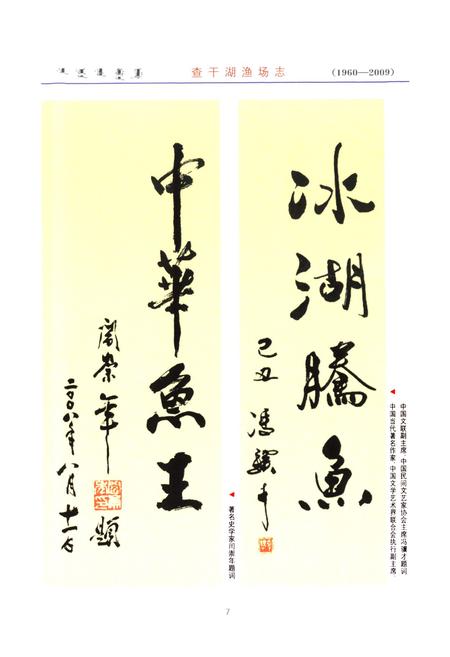 查干湖渔场志
(1960—2009)
冰湖騰魚
己丑 馮驥才
中国当代著名作家 中国文学艺术界联合会执行副主席
中国文联副主席 中国民间文艺家协会主席冯骥才题词
中華魚王
閻崇年題
二〇〇八年八月十一日
著名史学家阎崇年题词
7